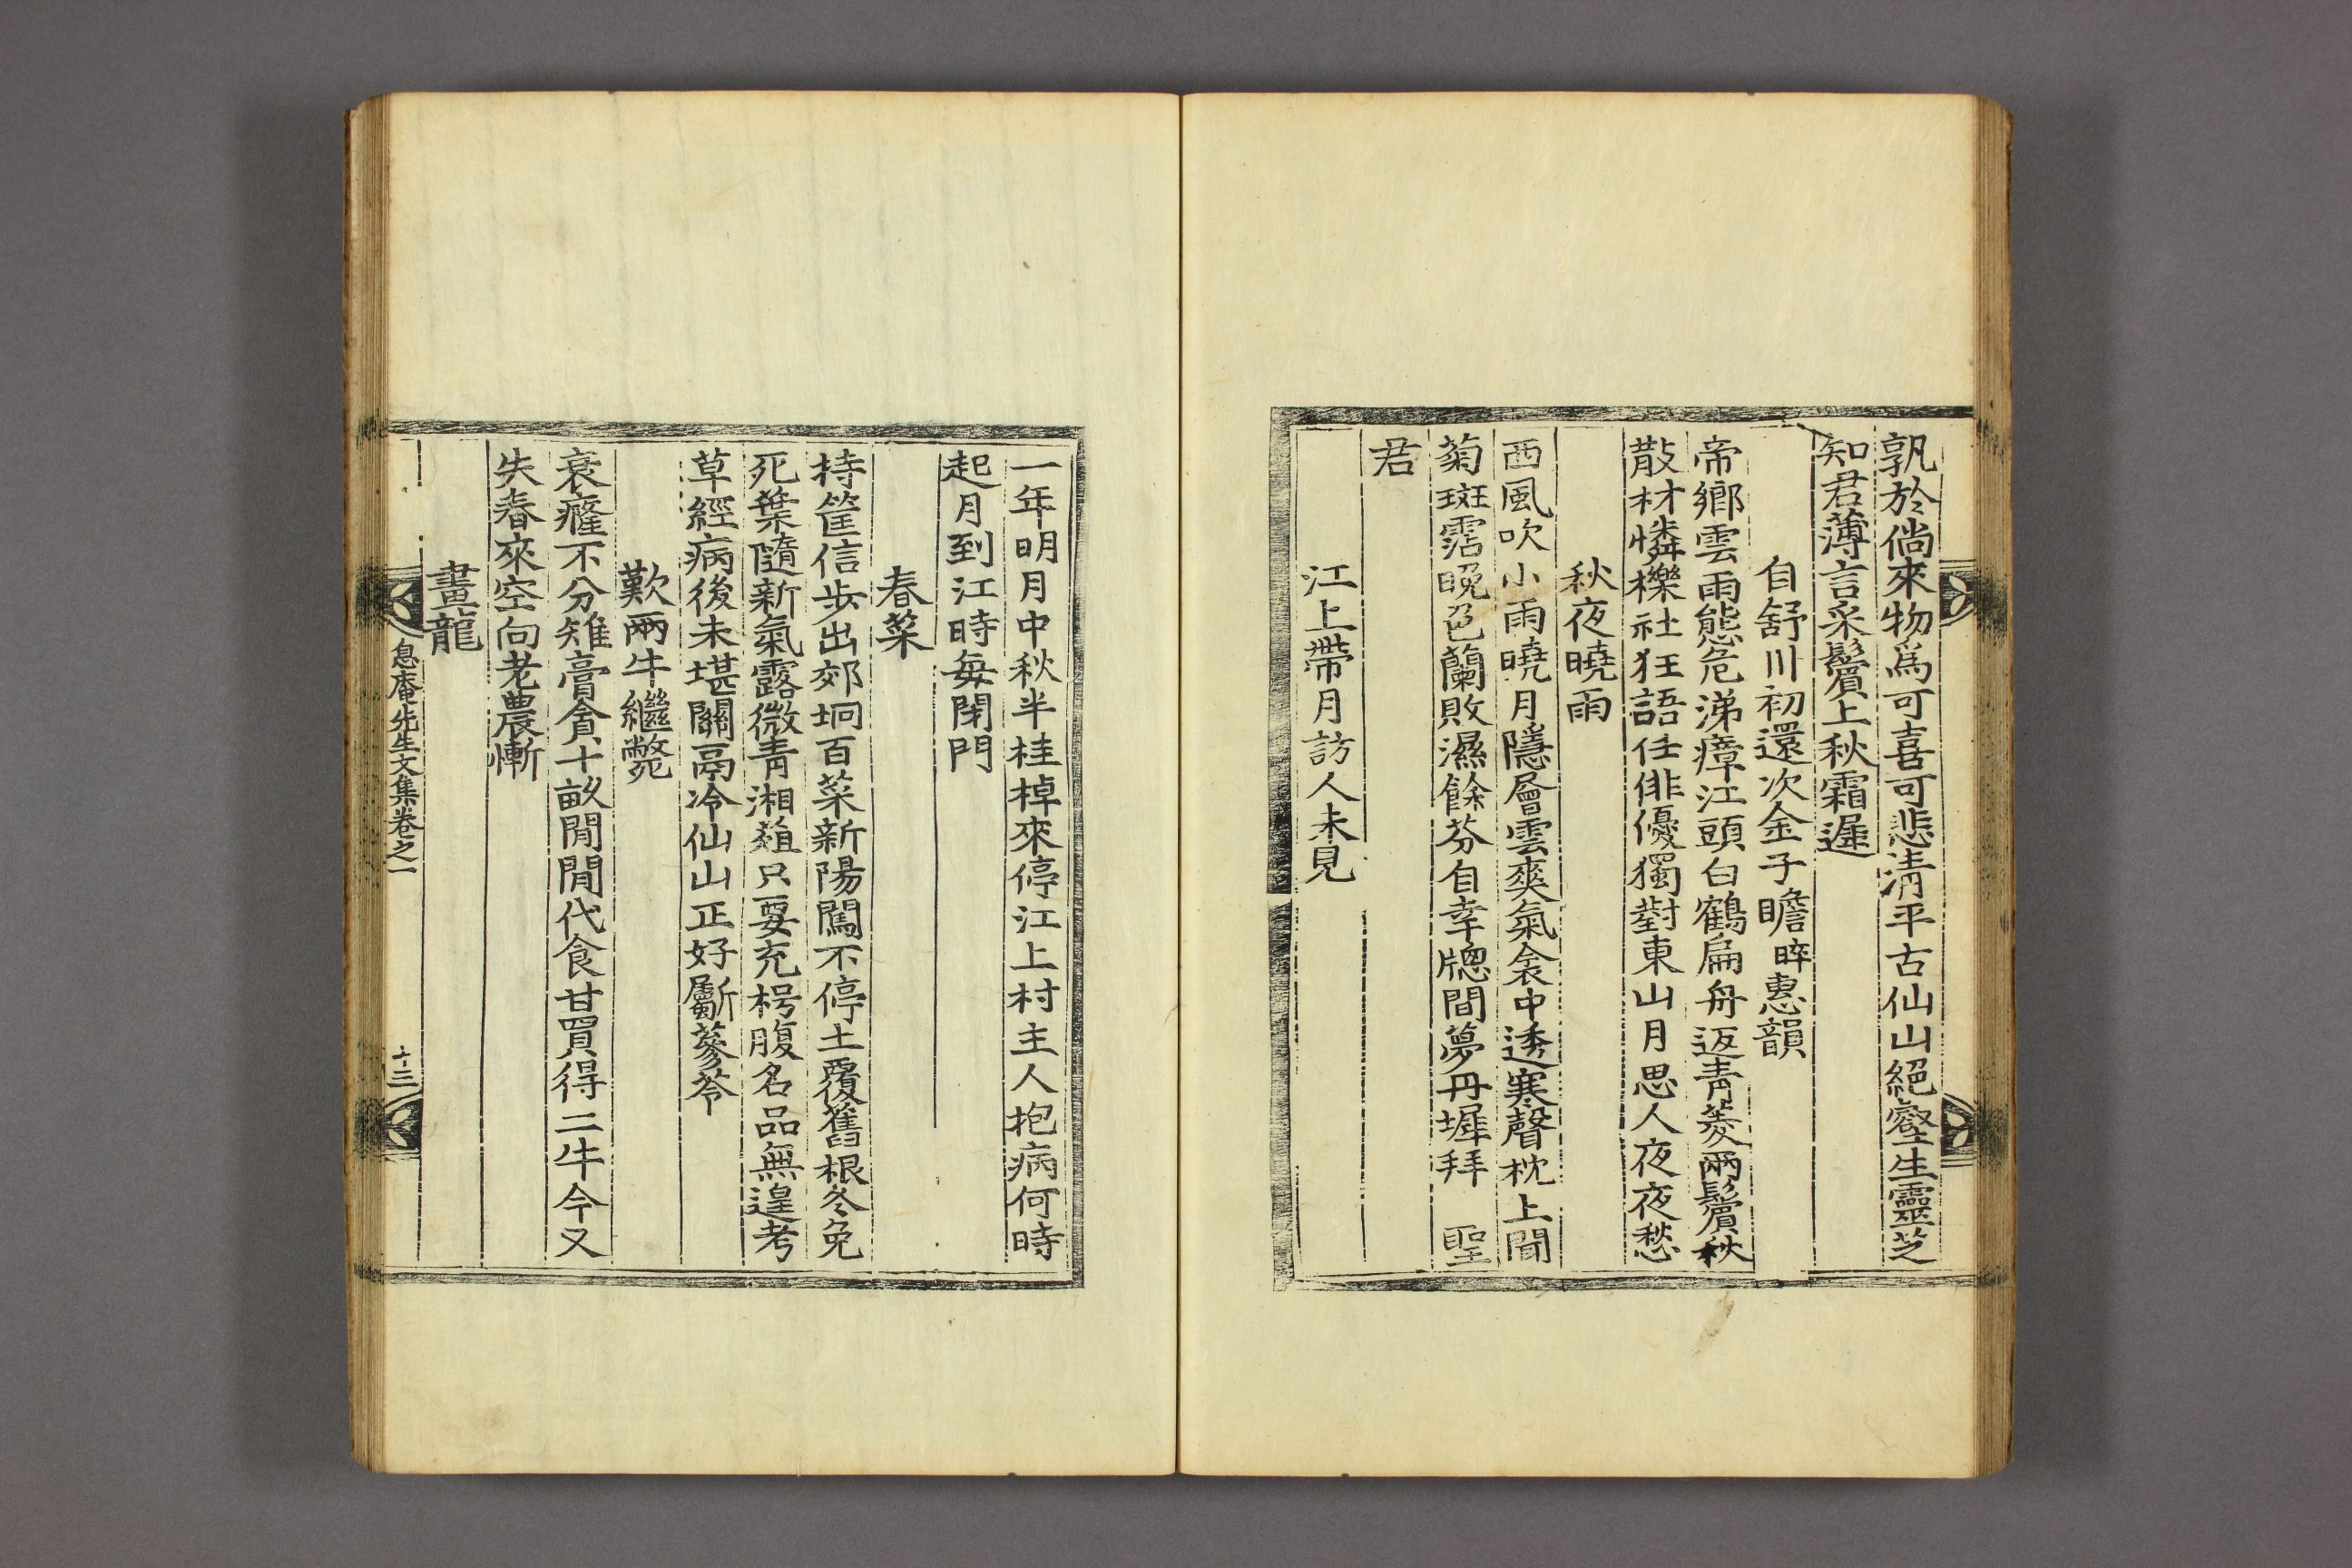 孰於倘來物爲可喜可悲淸平古仙山絕壑生靈芝
知君薄言采鬢上秋霜遲
自舒川初還次金子瞻晬惠韻
帝鄕雲雨態危涕瘴江頭白鶴扁舟返靑菱兩鬢秋
散材憐櫟社狂語任俳優獨對東山月思人夜夜愁
秋夜曉雨
西風吹小雨曉月隱層雲爽氣衾中透寒聲枕上聞
菊斑霑晚色蘭敗濕餘芬自幸牕間夢丹墀拜 聖
君
江上帶月訪人未見
一年明月中秋半桂棹來停江上村主人抱病何時
起月到江時每閉門
春菜
持筐信步出郊坰百菜新陽闖不停土覆舊根冬免
死葉隨新氣露微靑湘葅只要充枵腹名品無遑考
草經病後未堪關鬲冷仙山正好斸蔘苓
歎兩牛繼斃
衰癃不分雉膏貪十畝閒閒代食甘買得二牛今又
失春來空向老農慚
畫龍
息庵先生文集卷之一
十三